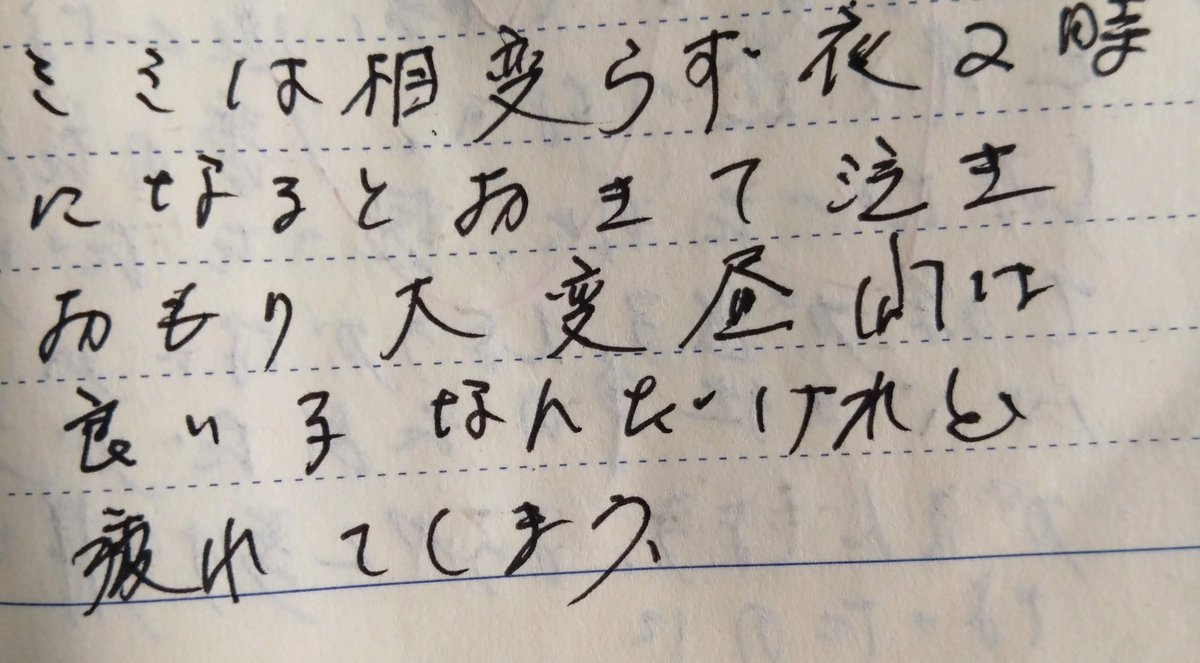 ミミは相変らず夜2時
になるとおきて泣き
おもり大変昼間は
良い子なんだけれど
疲れてしまう、